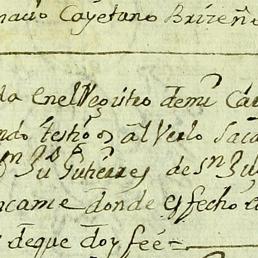 nacio Cayetano Brizeño
da enel Registro demi Ca
ndo testigos al Verlo Saca
Gutierres de Sn Ju
ncame donde es fecho
deque doy feé=